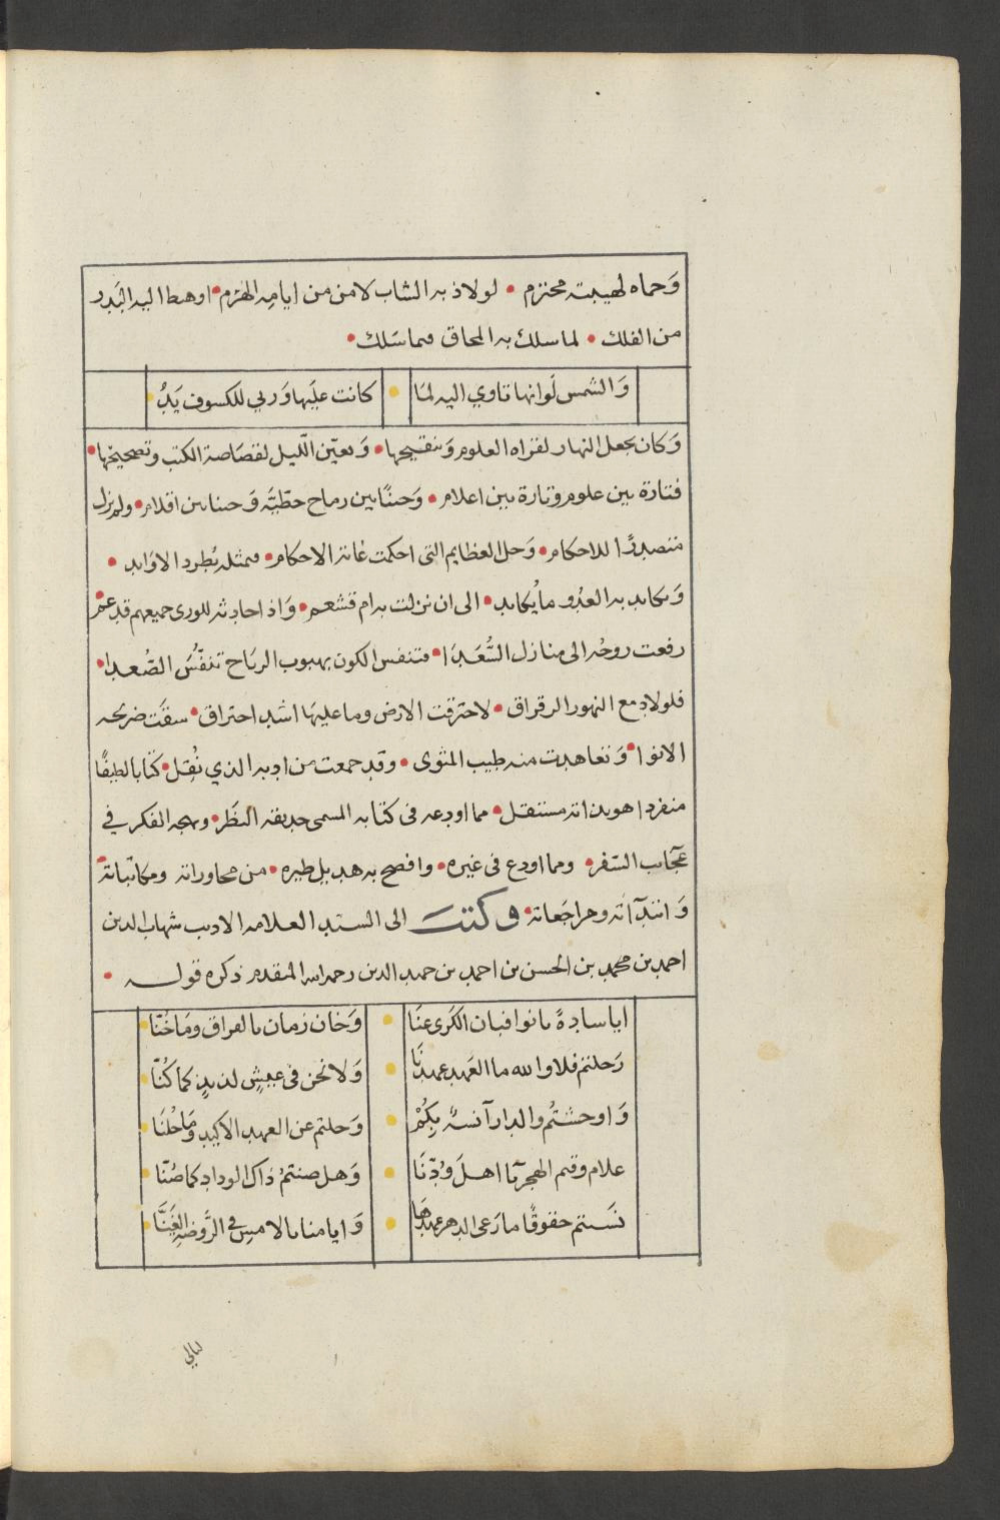 وَحماه لهيبته محترم • لو لاذ به الشاب لامن من ايامه الهرم • او هبط اليه البَدر
من الفلك • لما سلك به المحاق فيما سَلك •
وَالشمس لَو انها تاوي اليه لمَا • كانت عليَها وَربي للكسوف يَدُ
وَكان يجعل النهار لقراه العلوم وَتنقيحها • وَيعيّن الّليل لقصَاصة الكتب وتصحيحها •
فتارَة بين علوم وَتارة بين اعلام • وَحينًا بين رماح خطّيّه وَحينا بين اقلام • ولم يزل
متصدرًا للاحكام • وَحل العظايم التي احكمت غاية الاحكام • فمثله يُطرد الاوَابد •
وَيكابد به العدُو ما يُكابد • الى ان نزلت به ام قشعم • وَاذا حادثه للورى جميعهم قد عم •
رفعت روحُه الى منازل السُّعَدَا • فتنفس الكون بهبوب الريَاح تنفّسُ الصُّعدا •
فلولا دمع النهور الرقراق • لاحترقت الارض وما عليهَا اشد احتراق • سقَت ضريحه
الانوا • وَتعاهدت منه طيب المثوى • وقد جمعت من ادبه الذي نُقِل • كتَابا لطيفًا
منفردا هو بذاته مستقل • مما اودعه فى كتابه المسمى حديقه النظَر • وبهجه الفكر في
عجَايب السَفر • ومما اودع فى غيره • وافصح به هديل طيره • من محاوراته ومكاتباته
وَابتدَآته ومراجَعاته • وكتبت الى السيد العلامه الاديب شهاب الدين
احمد بن محمد بن الحسن بن احمد بن حميد الدين رحمه الله المقدم ذكره قوله •
ايا سادةً بانوا فبان الكَرى عنَا • وَخان زمان بالفراق ومَا خُنّا
رَحلتم فلا والله ما العَهد عهدنَا • وَلا نحن فى عيشٍ لذيذٍ كما كُنّا
وَاوحشتُم والدار آنسةٌ بِكُمْ • وَحلتم عن العهد الاكيد وَمَا حُلنَا
علام وقتم الهجر يَا اهل وُدِّنَا • وَهل صنتمُ ذاك الوداد كما صُنّا
نَسيتم حقوقًا ما رَعى الدهر عهدهَا • وَايامنا بالامسِ في الرَّوضه الغَنَّا
ليالي